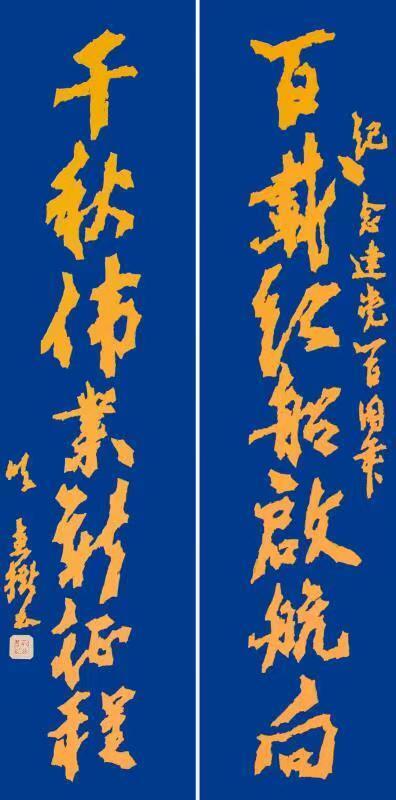 纪念建党百周年
百载红船启航向
千秋伟业新征程
书